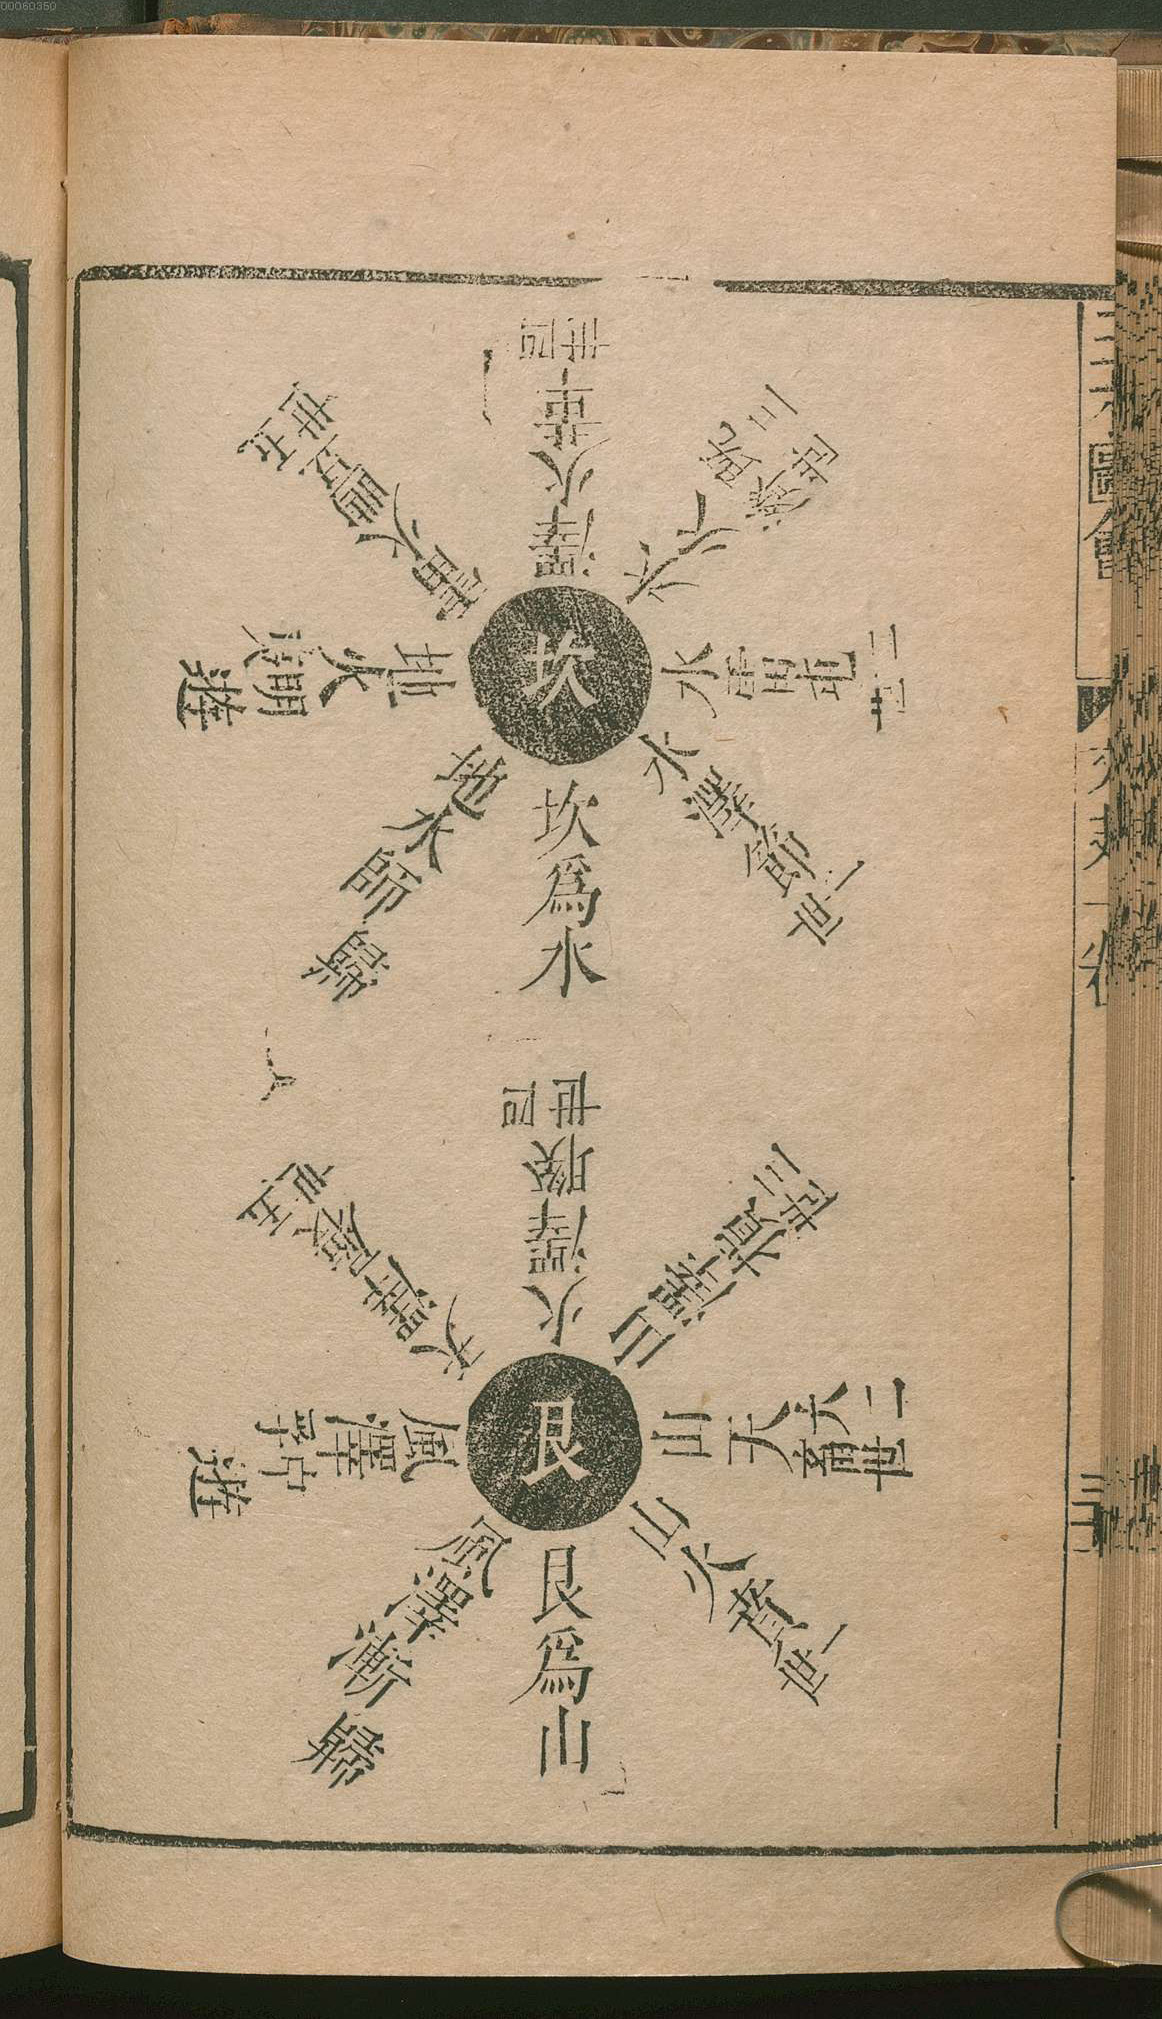 00060350
三才圖會
坎
坎爲水
水澤節一世
水雷屯二世
水火既濟三世
澤火革四世
雷火豐五世
地火明夷遊
地水師歸
艮
艮爲山
山火賁一世
山天大畜二世
山澤損三世
火澤睽四世
天澤履五世
風澤中孚遊
風澤漸歸